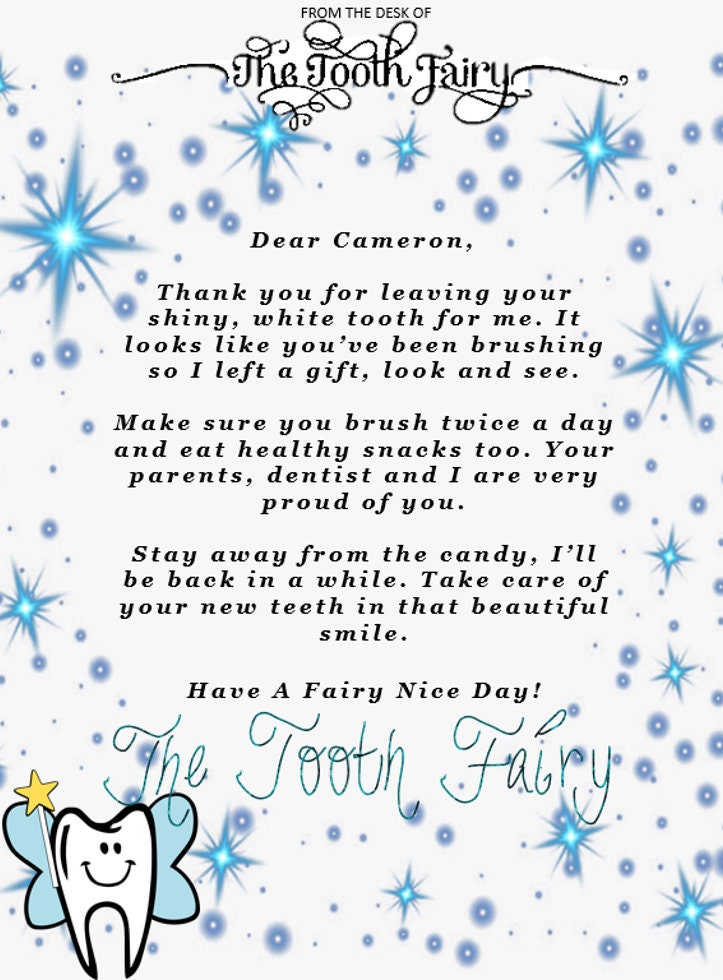 FROM THE DESK OF
The Tooth Fairy
Dear Cameron,
Thank you for leaving your
shiny, white tooth for me. It
looks like you’ve been brushing
so I left a gift, look and see.
Make sure you brush twice a day
and eat healthy snacks too. Your
parents, dentist and I are very
proud of you.
Stay away from the candy, I’ll
be back in a while. Take care of
your new teeth in that beautiful
smile.
Have A Fairy Nice Day!
The Tooth Fairy